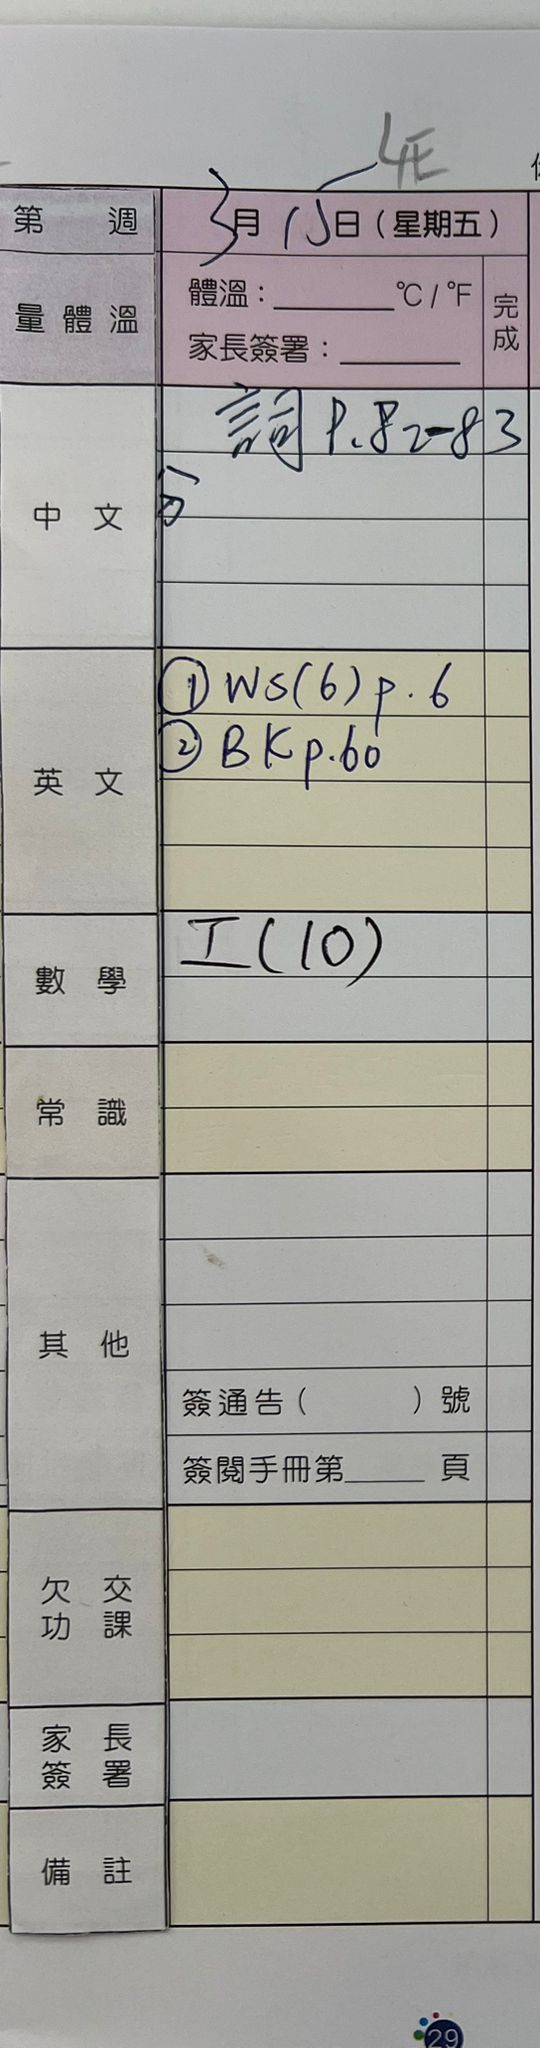 4E
第 週 3月15日(星期五)
量體溫 體溫:______°C/°F 完成
家長簽署:______
中文 詞 P.82-83
英文 ① WS(6) p.6
② BK p.60
數學 工(10)
常識
其他
簽通告( )號
簽閱手冊第____頁
欠交功課
家長簽署
備註
29